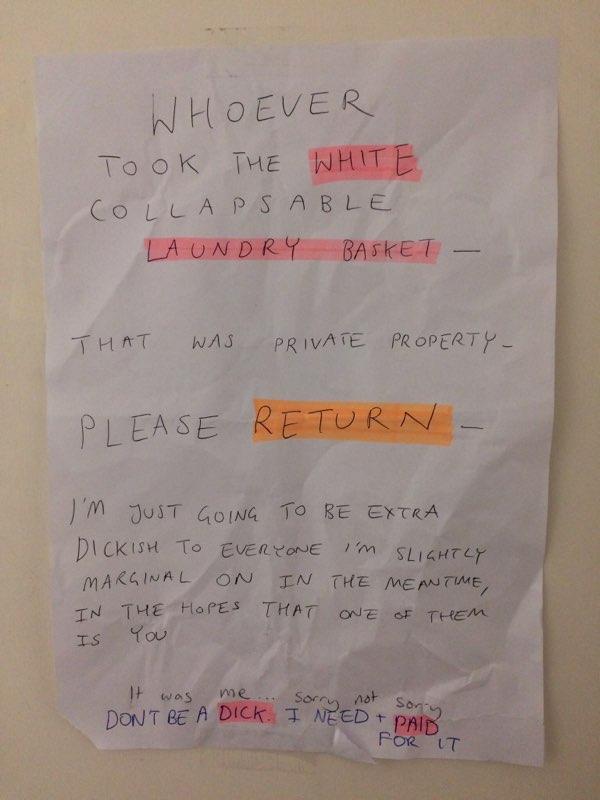 WHOEVER
TOOK THE WHITE
COLLAPSABLE
LAUNDRY BASKET —
THAT WAS PRIVATE PROPERTY –
PLEASE RETURN –
I'M JUST GOING TO BE EXTRA
DICKISH TO EVERYONE I'M SLIGHTLY
MARGINAL ON IN THE MEANTIME,
IN THE HOPES THAT ONE OF THEM
IS YOU
It was me... sorry not sorry
DON'T BE A DICK. I NEED + PAID
FOR IT